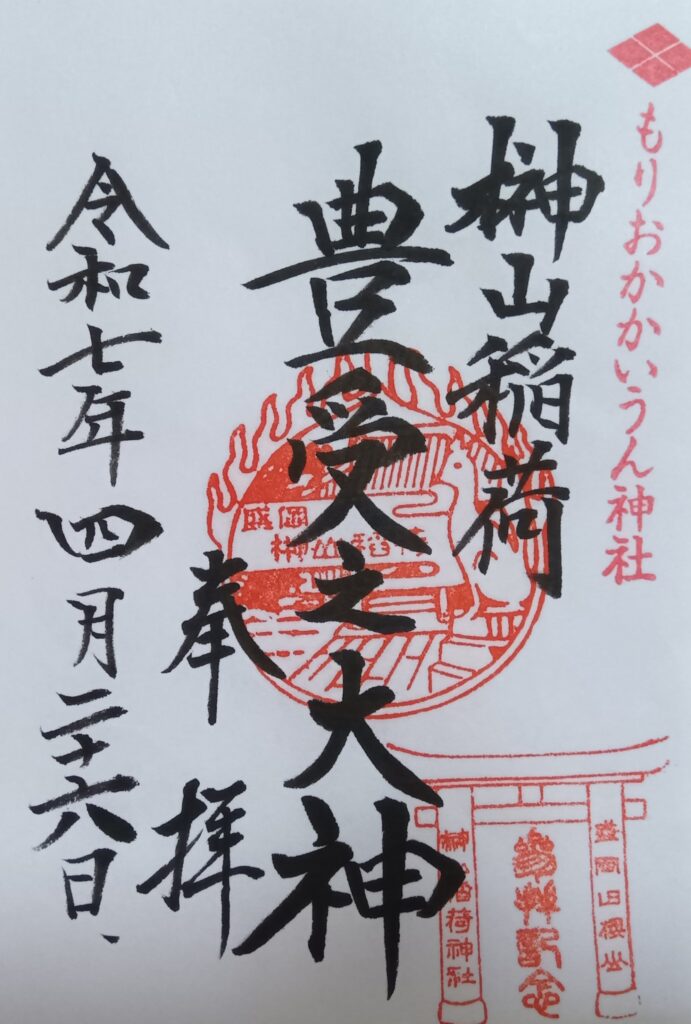 もりおかかいうん神社
榊山稲荷
豊受之大神
奉拝
令和七年四月二十六日、
盛岡
榊山稲荷
榊山稲荷神社
参拝記念